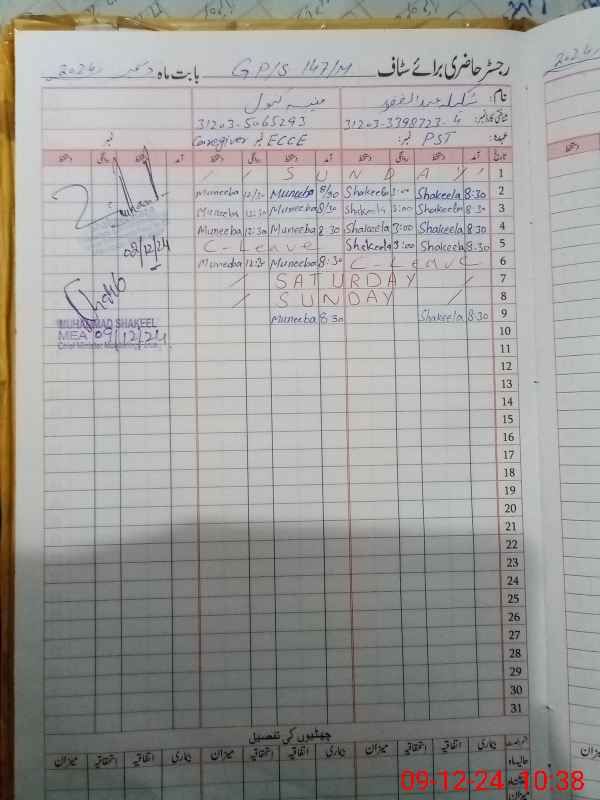 رجسٹر حاضری برائے سٹاف GP/S 147/M بابت ماہ دسمبر 2024ء
نام: شکیلہ عبدالغفور
شناختی کارڈ نمبر: 31203-3398723-4 31203-5065293
عہدہ: PST نمبر: Caregiver ECCE نمبر نمبر
تاریخ آمد دستخط روانگی دستخط آمد دستخط روانگی دستخط آمد دستخط روانگی دستخط
/ / SUNDAY / / 1
Muneeba 12/30 Muneeba 8/30 Shakeela 3:00 Shakeela 8:30 2
Muneeba 12:30 Muneeba 8/30 Shakeela 3:00 Shakeela 8:30 3
Muneeba 12:30 Muneeba 8:30 Shakeela 3:00 Shakeela 8:30 4
C-Leave Shakeela 3:00 Shakeela 8:30 5
Muneeba 12:30 Muneeba 8:30 C-Leave 6
/ SATURDAY / 7
/ SUNDAY / 8
Muneeba 8:30 Shakeela 8:30 9
02/12/24
MUHAMMAD SHAKEEL
MEA 09/12/24
10
11
12
13
14
15
16
17
18
19
20
21
22
23
24
25
26
27
28
29
30
31
چھٹیوں کی تفصیل
بیماری اتفاقیہ استحقاقیہ میزان بیماری اتفاقیہ استحقاقیہ میزان بیماری اتفاقیہ استحقاقیہ میزان
حالیہ ماہ
میزان
09-12-24 10:38
2024ء